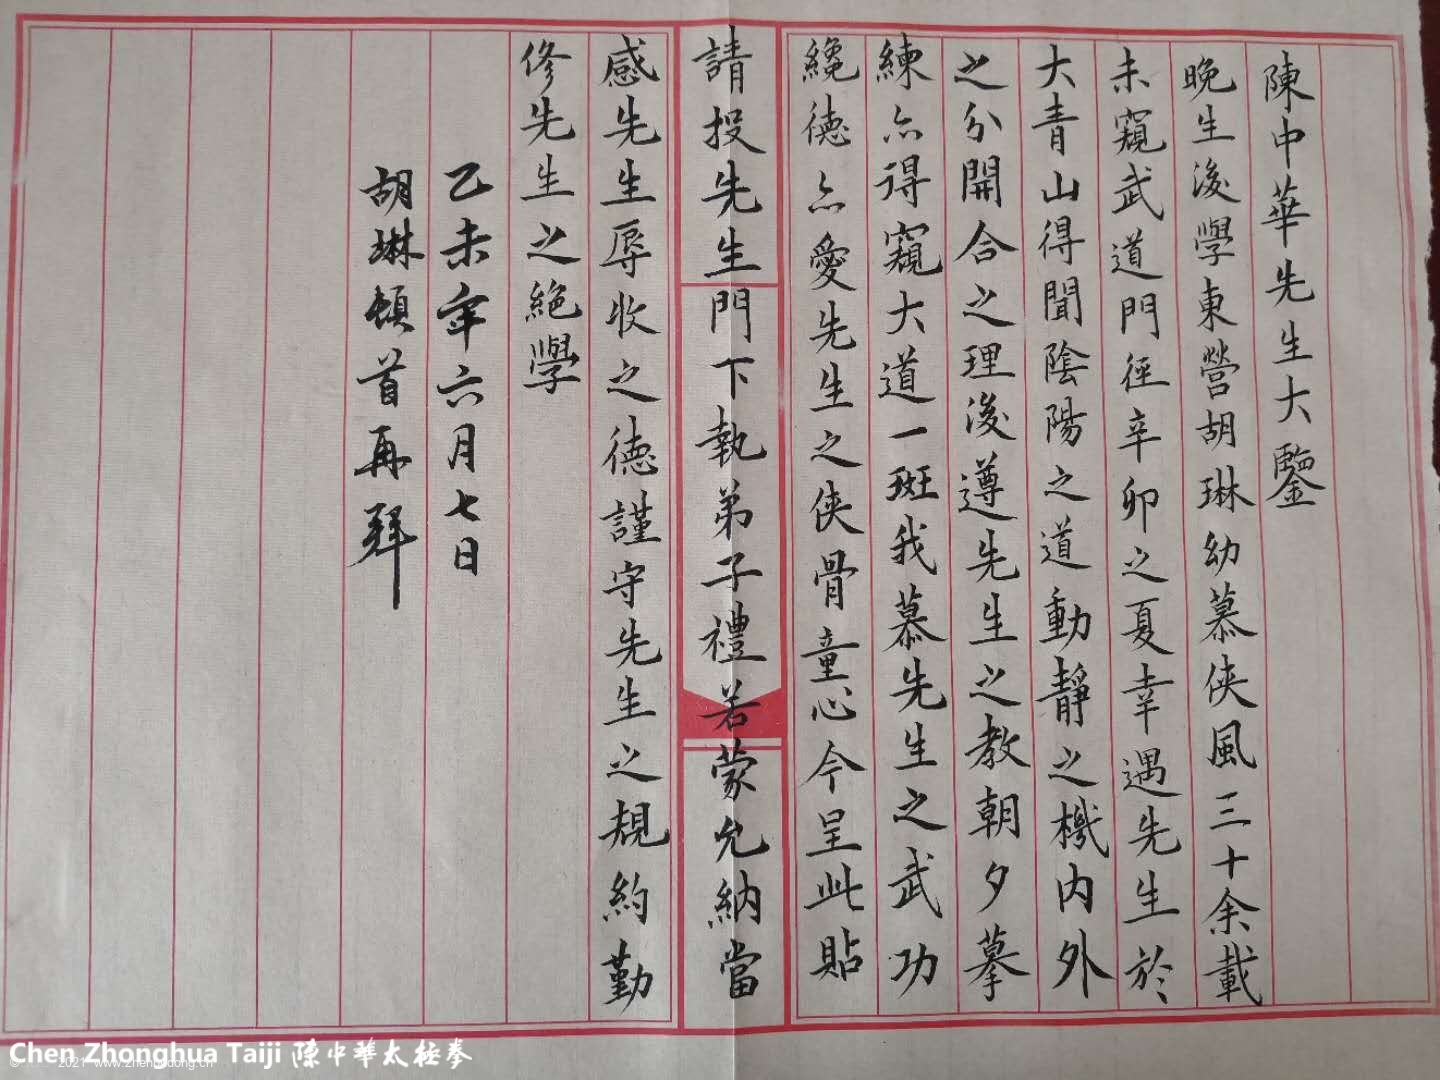 陳中華先生大鑒
晚生後學東營胡琳幼慕俠風三十余載
未窺武道門徑辛卯之夏幸遇先生於
大青山得聞陰陽之道動靜之機内外
之分開合之理後遵先生之教朝夕摹
練亦得窺大道一斑我慕先生之武功
纔德亦愛先生之俠骨童心今呈此貼
請投先生門下執弟子禮若蒙允納當
感先生辱收之德謹守先生之規約勤
修先生之絕學
乙未年六月七日
胡琳頓首再拜
Chen Zhonghua Taiji 陳中華太極拳
© 2021 www.zhenzidong.cn